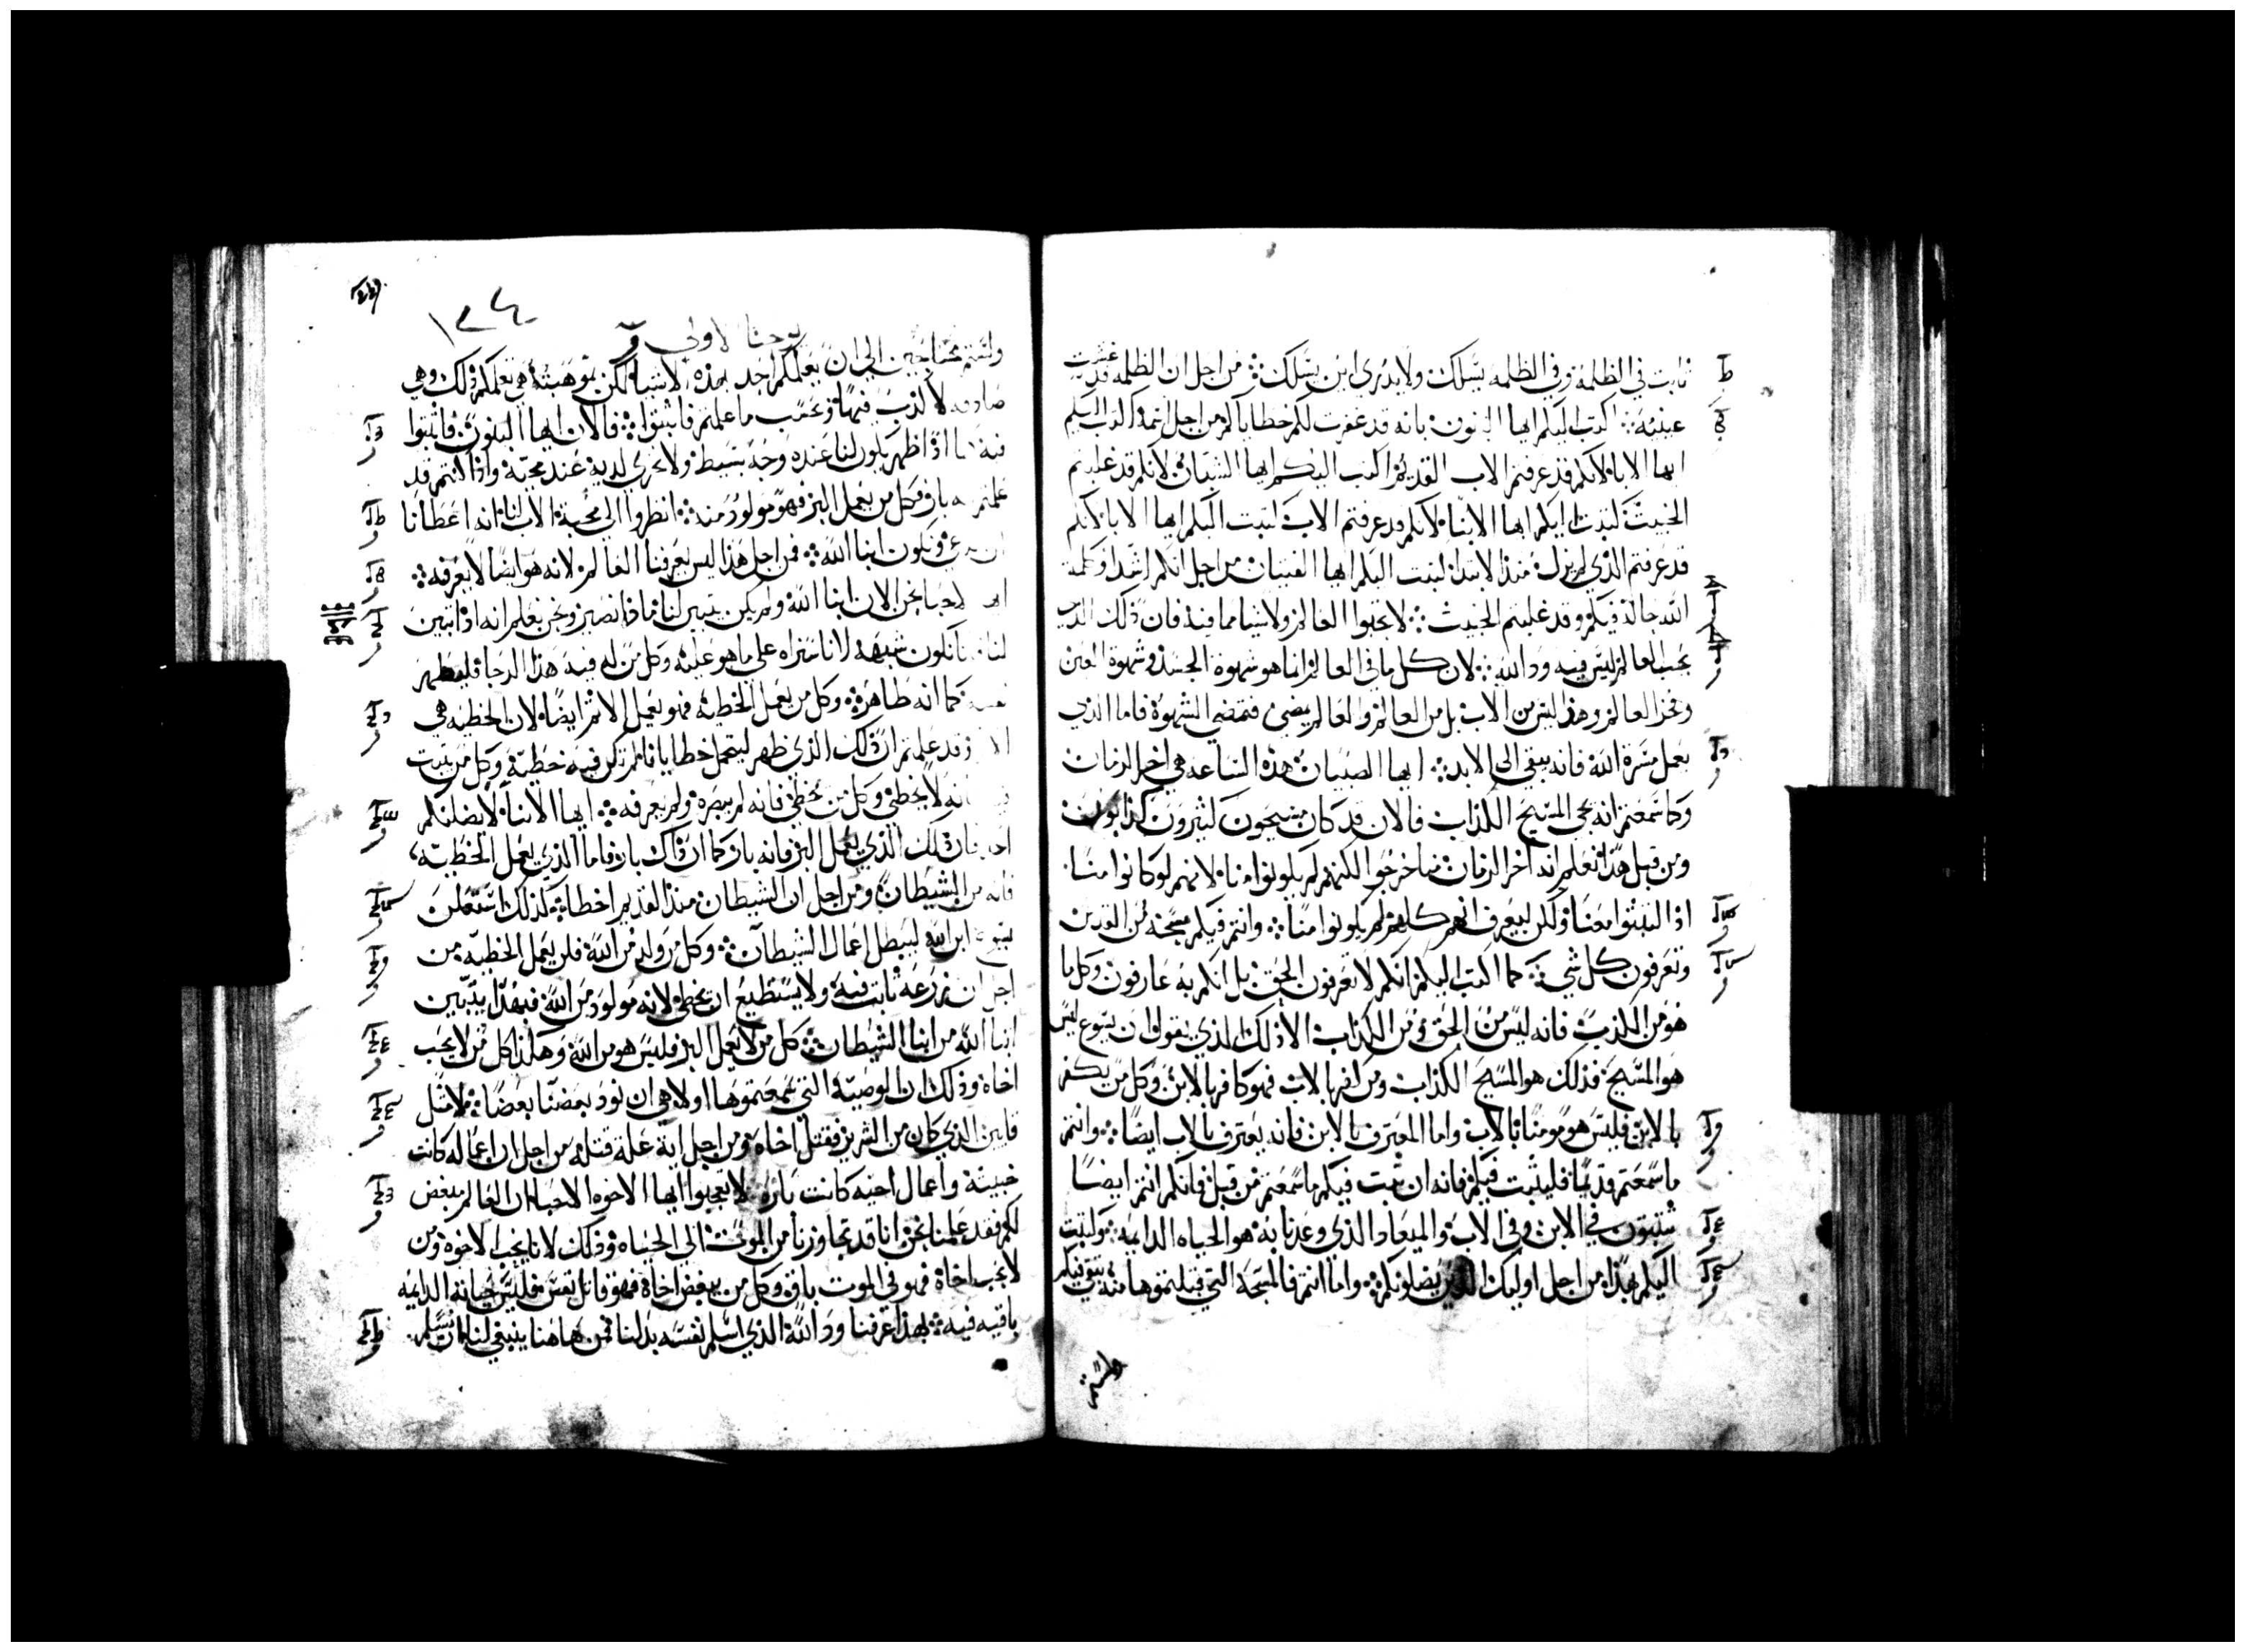 ثابت في الظلمة وفي الظلمه يسلك ولا يدري اين يسلك من اجل ان الظلمه قد غشيت
عينيه اكتب اليكم ايها البنون بانه قد غفرت لكم خطاياكم من اجل اسمه اكتب اليكم
ايها الابا لانكم قد عرفتم الاب القديم اكتب اليكم ايها الشبان لانكم قد غلبتم
الخبيث كتبت اليكم ايها الابنا لانكم قد عرفتم الاب كتبت اليكم ايها الابا لانكم
قد عرفتم الذي لم يزل منذ الابتدا كتبت اليكم ايها الفتيان من اجل انكم اشدا وكلمة
الله حالة فيكم وقد غلبتم الخبيث لا تحبوا العالم ولا شيا مما فيه فان ذلك الذي
يحب العالم ليس فيه ود الله لان كل ما في العالم انما هو شهوة الجسد وشهوة العين
وفخر العالم وهذا ليس من الاب بل من العالم والعالم يمضي فتمضي الشهوة فاما الذي
يعمل مسرة الله فانه يبقي الي الابد ايها الصبيان هذه الساعه هي اخر الزمان
وكما سمعتم انه يجي المسيح الكذاب فالان قد كان مسيحيون كثيرون كذابون
ومن قبل هذا نعلم انه اخر الزمان منا خرجوا لكنهم لم يكونوا منا لانهم لو كانوا منا
اذا لثبتوا معنا ولكن ليعرف انهم كلهم لم يكونوا منا وانتم فيكم مسحة من القدس
وتعرفون كل شي ما اكتب اليكم انكم لا تعرفون الحق بل انكم به عارفون وكل ما
هو من الكذب فانه ليس من الحق ومن الكذاب الا ذلك الذي يقول ان يسوع ليس
هو المسيح فذلك هو المسيح الكذاب ومن كفر بالاب فهو كافر بالابن وكل من يكفر
بالابن فليس هو مومنا بالاب واما المعترف بالابن فانه يعترف بالاب ايضا وانتم
ما سمعتم قديما فليثبت فيكم فانه ان ثبت فيكم ما سمعتم من قبل فانكم انتم ايضا
تثبتون في الابن وفي الاب والميعاد الذي وعدنا به هو الحياه الدايمه وكتبت
اليكم بهذا من اجل اوليك الذين يضلونكم واما انتم فالمسحة التي قبلتموها منه تبقي فيكم
ولستم
١٣٤
يوحنا الاولي
ولستم محتاجين الي ان يعلمكم احد بهذه الاشيا لكن موهبته هي تعلمكم ذلك وهي
صادقه لا كذب فيها وبحسب ما علمتم فاثبتوا فالان ايها البنون فاثبتوا
فيه اذا ظهر يكون لنا عنده وجه بسيط ولا نخزي لديه عند مجيه واذا كنتم قد
علمتم انه بار فكل من يعمل البر فهو مولود منه انظروا الي محبة الاب لنا انه اعطانا
ان ندعي ونكون ابنا الله فمن اجل هذا ليس يعرفنا العالم لانه هو ايضا لا يعرفه
ايها الاحبا نحن الان ابنا الله ولم يكن يتبين لنا ماذا نصير ونحن نعلم انه اذا تبين
لنا فانا نكون شبهه لانا سنراه علي ما هو عليه وكل من له فيه هذا الرجا فليطهر
نفسه كما انه طاهر وكل من يعمل الخطيه فهو يعمل الاثم ايضا لان الخطيه هي
الاثم وقد علمتم ان ذلك الذي ظهر ليحمل خطايانا لم تكن فيه خطية وكل من يثبت
فيه فانه لا يخطي وكل من يخطي فانه لم يبصره ولم يعرفه ايها الابنا لا يضلنكم
احد فان ذلك الذي يعمل البر فانه بار كما ان ذاك بار فاما الذي يعمل الخطيه
فانه من الشيطان ومن اجل ان الشيطان منذ القديم اخطا لذلك استعلن
يسوع ابن الله ليبطل اعمال الشيطان وكل من ولد من الله فلن يعمل الخطيه من
اجل ان زرعه ثابت فيه ولا يستطيع ان يخطي لانه مولود من الله فبهذا يتبين
ابنا الله من ابنا الشيطان كل من لا يعمل البر فليس هو من الله وهكذا كل من لا يحب
اخاه وذلك ان الوصيه التي سمعتموها اولا هي ان نود بعضنا بعضا لا مثل
قايين الذي كان من الشرير فقتل اخاه ومن اجل اية علة قتله من اجل ان اعماله كانت
خبيثة واعمال اخيه كانت باره لا تعجبوا ايها الاخوه الاحبا ان العالم يبغض
لكم فقد علمنا نحن انا قد تجاوزنا من الموت الي الحياه وذلك لانا نحب الاخوة ومن
لا يحب اخاه فهو في الموت باق وكل من يبغض اخاه فهو قاتل نفس فليس حياته الدايمه
باقيه فيه بهذا عرفنا ود الله الذي اسلم نفسه بدلنا فمن هاهنا ينبغي لنا ان نسلم